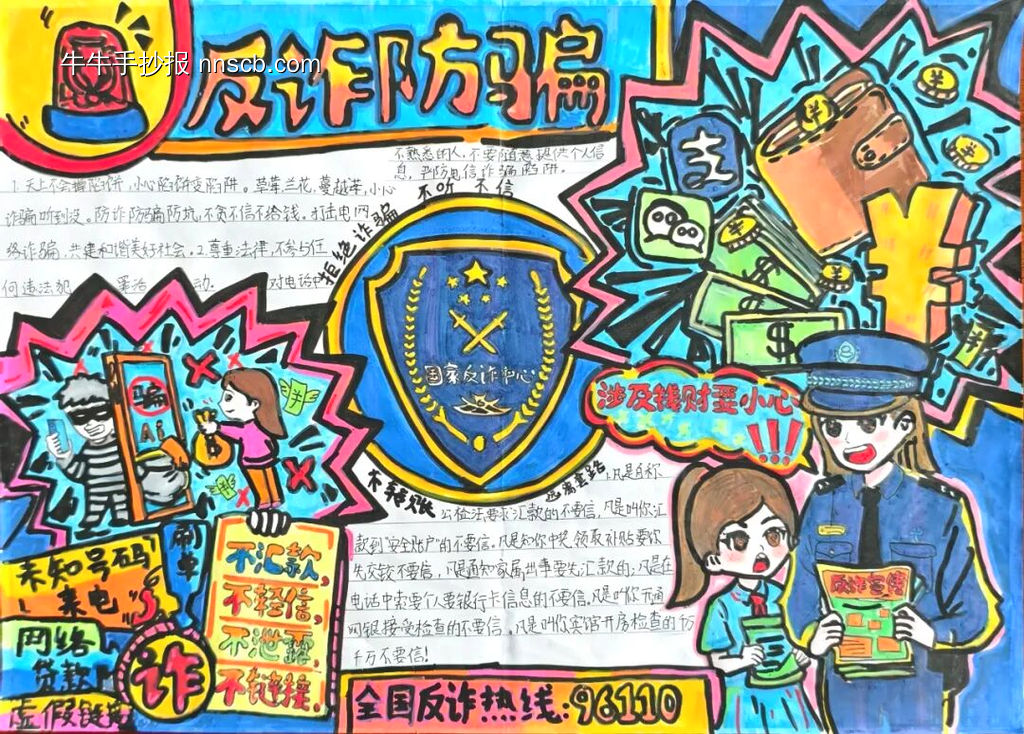 牛牛手抄报 nnscb.com
反诈防骗
不熟悉的人,不要随意提供个人信
息,严防电信诈骗陷阱。
1.天上不会掉馅饼,小心陷饼变陷阱。草莓,兰花,蔓越莓,小心
诈骗听到没。防诈防骗防坑,不贪不信不给钱。打击电网
络诈骗,共建和谐美好社会。2.尊重法律,不参与任
何违法犯 罪活 动. 对电话中
拒绝诈骗 不听 不信
支
国家反诈中心
骗
Ai
涉及钱财要小心!!!
不转账
远离套路
凡是自称
公检法要求汇款的不要信,凡是叫你汇
款到"安全账户"的不要信.凡是知你中奖,领取补贴要你
先交钱不要信,凡是通知家属出事要先汇款的;凡是在
电话中索要个人要银行卡信息的不要信.凡是叫你开通
网银接受检查的不要信。凡是叫你宾馆开房检查的
千万不要信!
未知号码
来电
刷单
网络
贷款
虚假链接
诈
不汇款,
不轻信,
不泄露,
不链接.
反诈宣传
全国反诈热线:96110